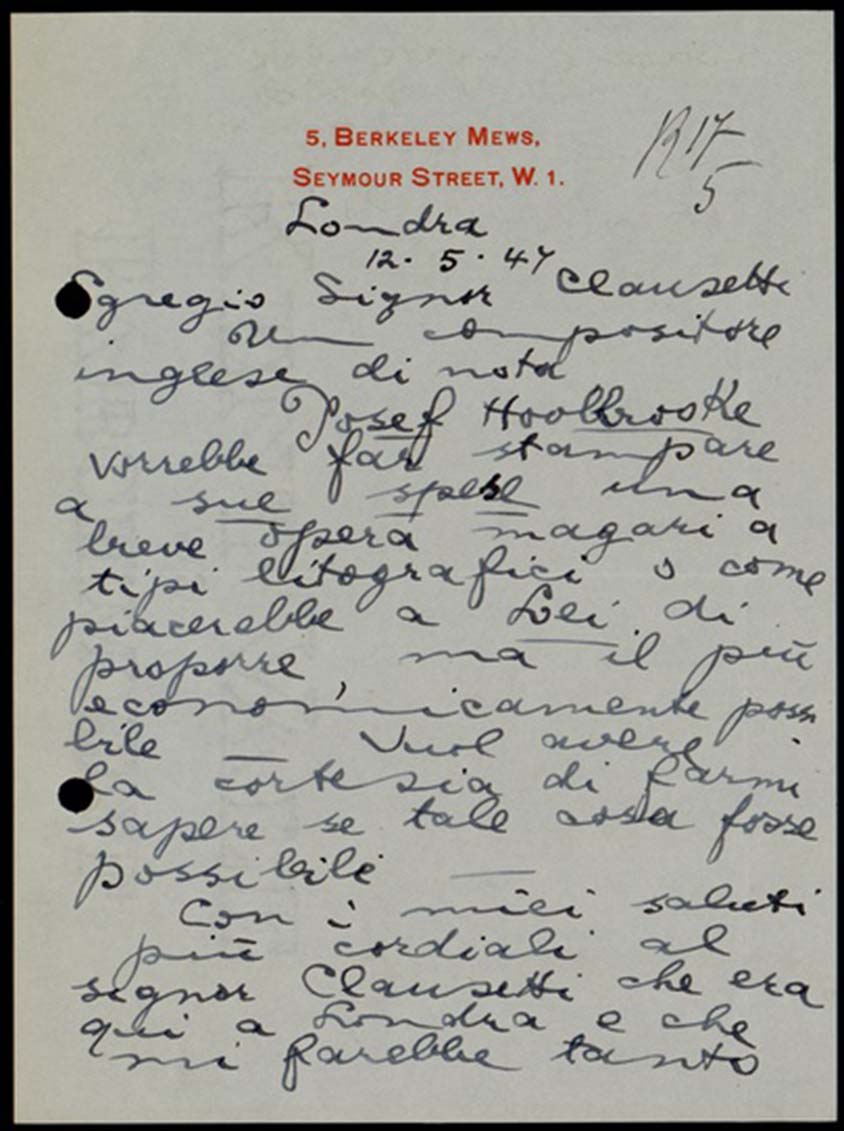 5, BERKELEY MEWS,
SEYMOUR STREET, W. 1.
R 17
5
Londra
12. 5. 47
Egregio Signor Clausetti
Un compositore
inglese di nota
Josef Hoolbrooke
vorrebbe far stampare
a sue spese una
breve opera magari a
tipi litografici o come
piacerebbe a Lei di
proporre, ma il più
economicamente possi
bile — Vuol avere
la cortesia di farmi
sapere se tale cosa fosse
possibile —
Con i miei saluti
più cordiali al
signor Clausetti che era
qui a Londra e che
mi farebbe tanto